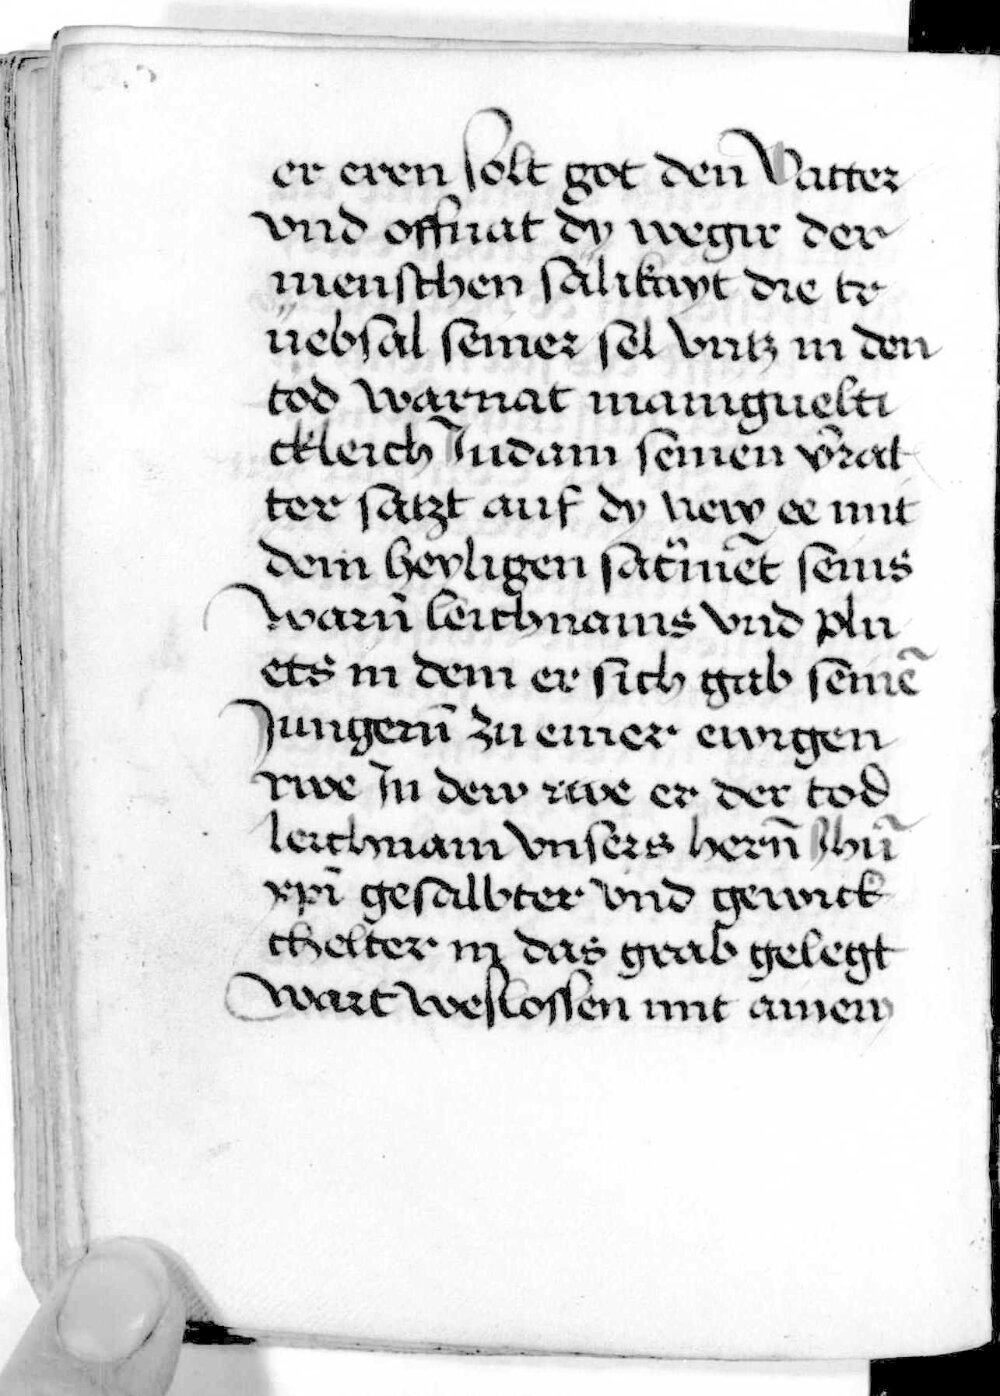 er eren solt got den Vatter
vnd offnat dy wegir der
menschen sälikayt die tr
üebsal seiner sel vntz in den
tod warnat maniguelti
ckleich Judam seinen v̄rat
ter satzt auf dy new ee mit
dem heyligen sacͬmēt seins
warn̄ leichnams vnd plu
ets in dem er sich gab seinē
Jungern̄ zu einer ewigen
rwe In dew rwe er der tod
leichnam vnsers hern̄ Jhū
xpī gesalbter vnd gewick
chelter in das grab gelegt
wart weslossen mit ainew